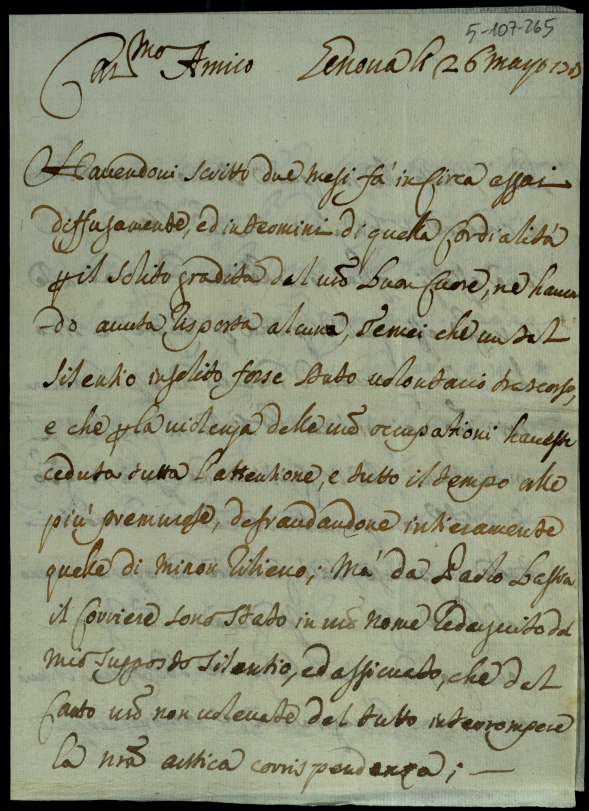 5-107-265
Car.mo Amico Genova li 26 mayo
Havendovi scritto due mesi fà in circa assai
diffusamente, ed in termini di quella Cordialità
p il solito gradita dal vro buon Cuore, ne haven
do avuta risposta alcuna, temei che un tal
silentio insolito fosse stato volontario trascorso,
e che p la violenza delle vre occupationi haveste
ceduta tutta l'attentione, e tutto il tempo alle
più premurose, defraudandone intieramente
quelle di minor rilievo; Mà da Paolo
il Corriere sono stato in vro nome redarguito del
mio supposto silentio, ed assicurato, che dal
Canto vro non volevate del tutto interrompere
la nra antica corrispondenza;